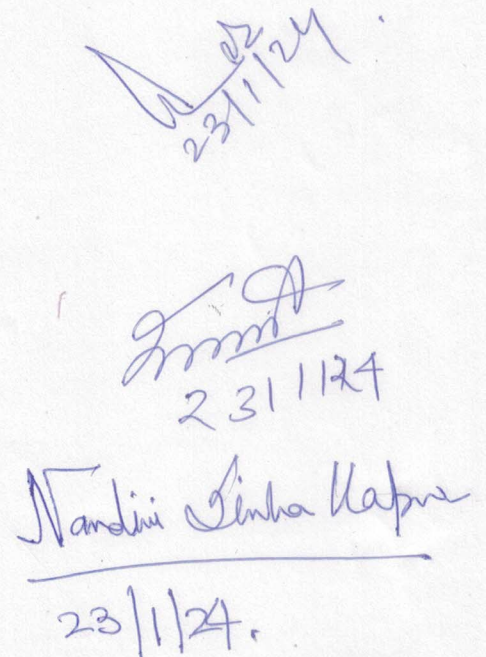 23/1/24
23/1/24
Nandini Sinha Kapur
23/1/24.